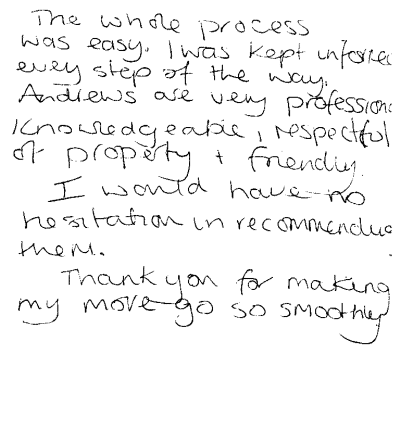 The whole process
was easy. I was kept informed
every step of the way.
Andrews are very professional
knowledgeable, respectful
of property + friendly.
I would have no
hesitation in recommending
them.
Thank you for making
my move go so smoothly